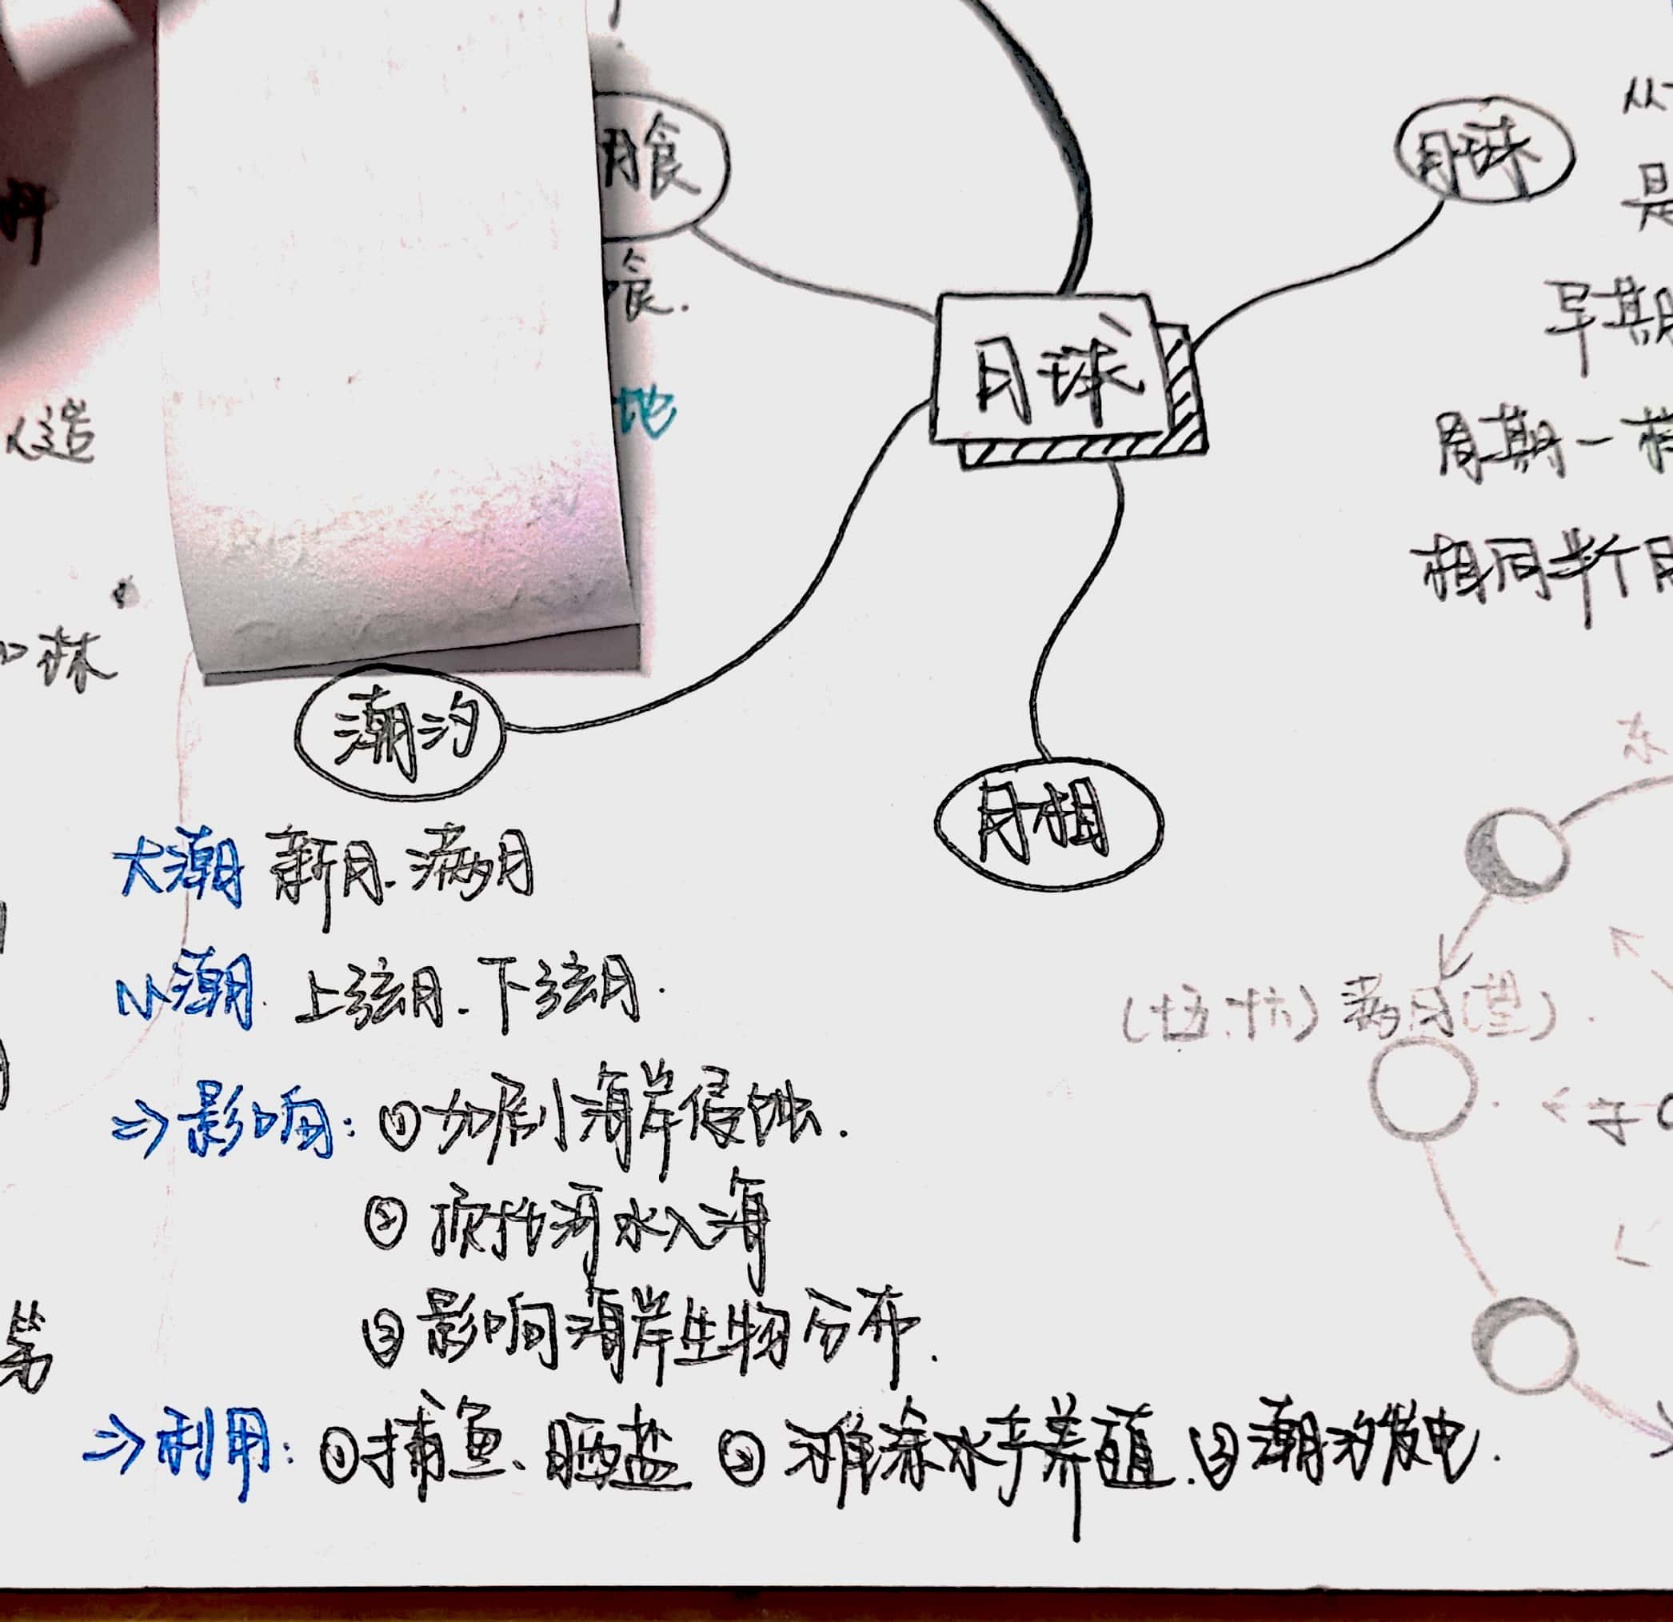 月食
食.
地
月球
月球
早期
周期一
相同半个月
造
球
潮汐
月相
大潮 新月.满月
小潮.上弦月.下弦月.
⇒影响:①加剧海岸侵蚀.
②顶托河水入海
③影响海岸生物分布.
⇒利用:①捕鱼、晒盐 ②滩涂水产养殖.③潮汐发电.
(十五.十六)满月(望).
东